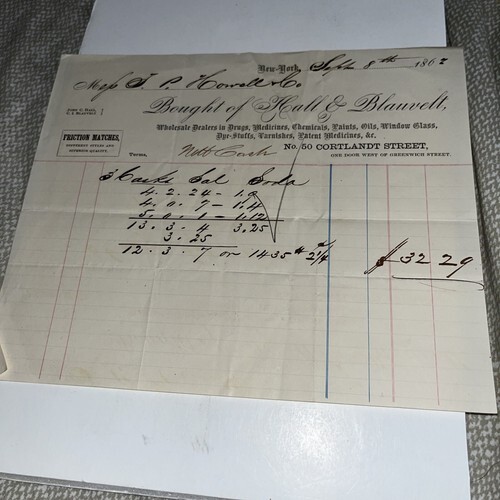 New-York, Sept 8th 1862
Mess T. P. Howell & Co
Bought of Hull & Blauvelt,
Wholesale Dealers in Drugs, Medicines, Chemicals, Paints, Oils, Window Glass,
Dye-Stuffs, Varnishes, Patent Medicines, &c.
FRICTION MATCHES,
DIFFERENT STYLES AND
SUPERIOR QUALITY.
No. 50 CORTLANDT STREET,
ONE DOOR WEST OF GREENWICH STREET.
Terms, Nett Cash
3 Casks Sal Soda
4.2.24 - 1.0
4.0.7 - 1.4
5.0.1 - 1.12
13.3.4 3.25
3.25
12.3.7 or 1435 # 2 1/4 $32 29